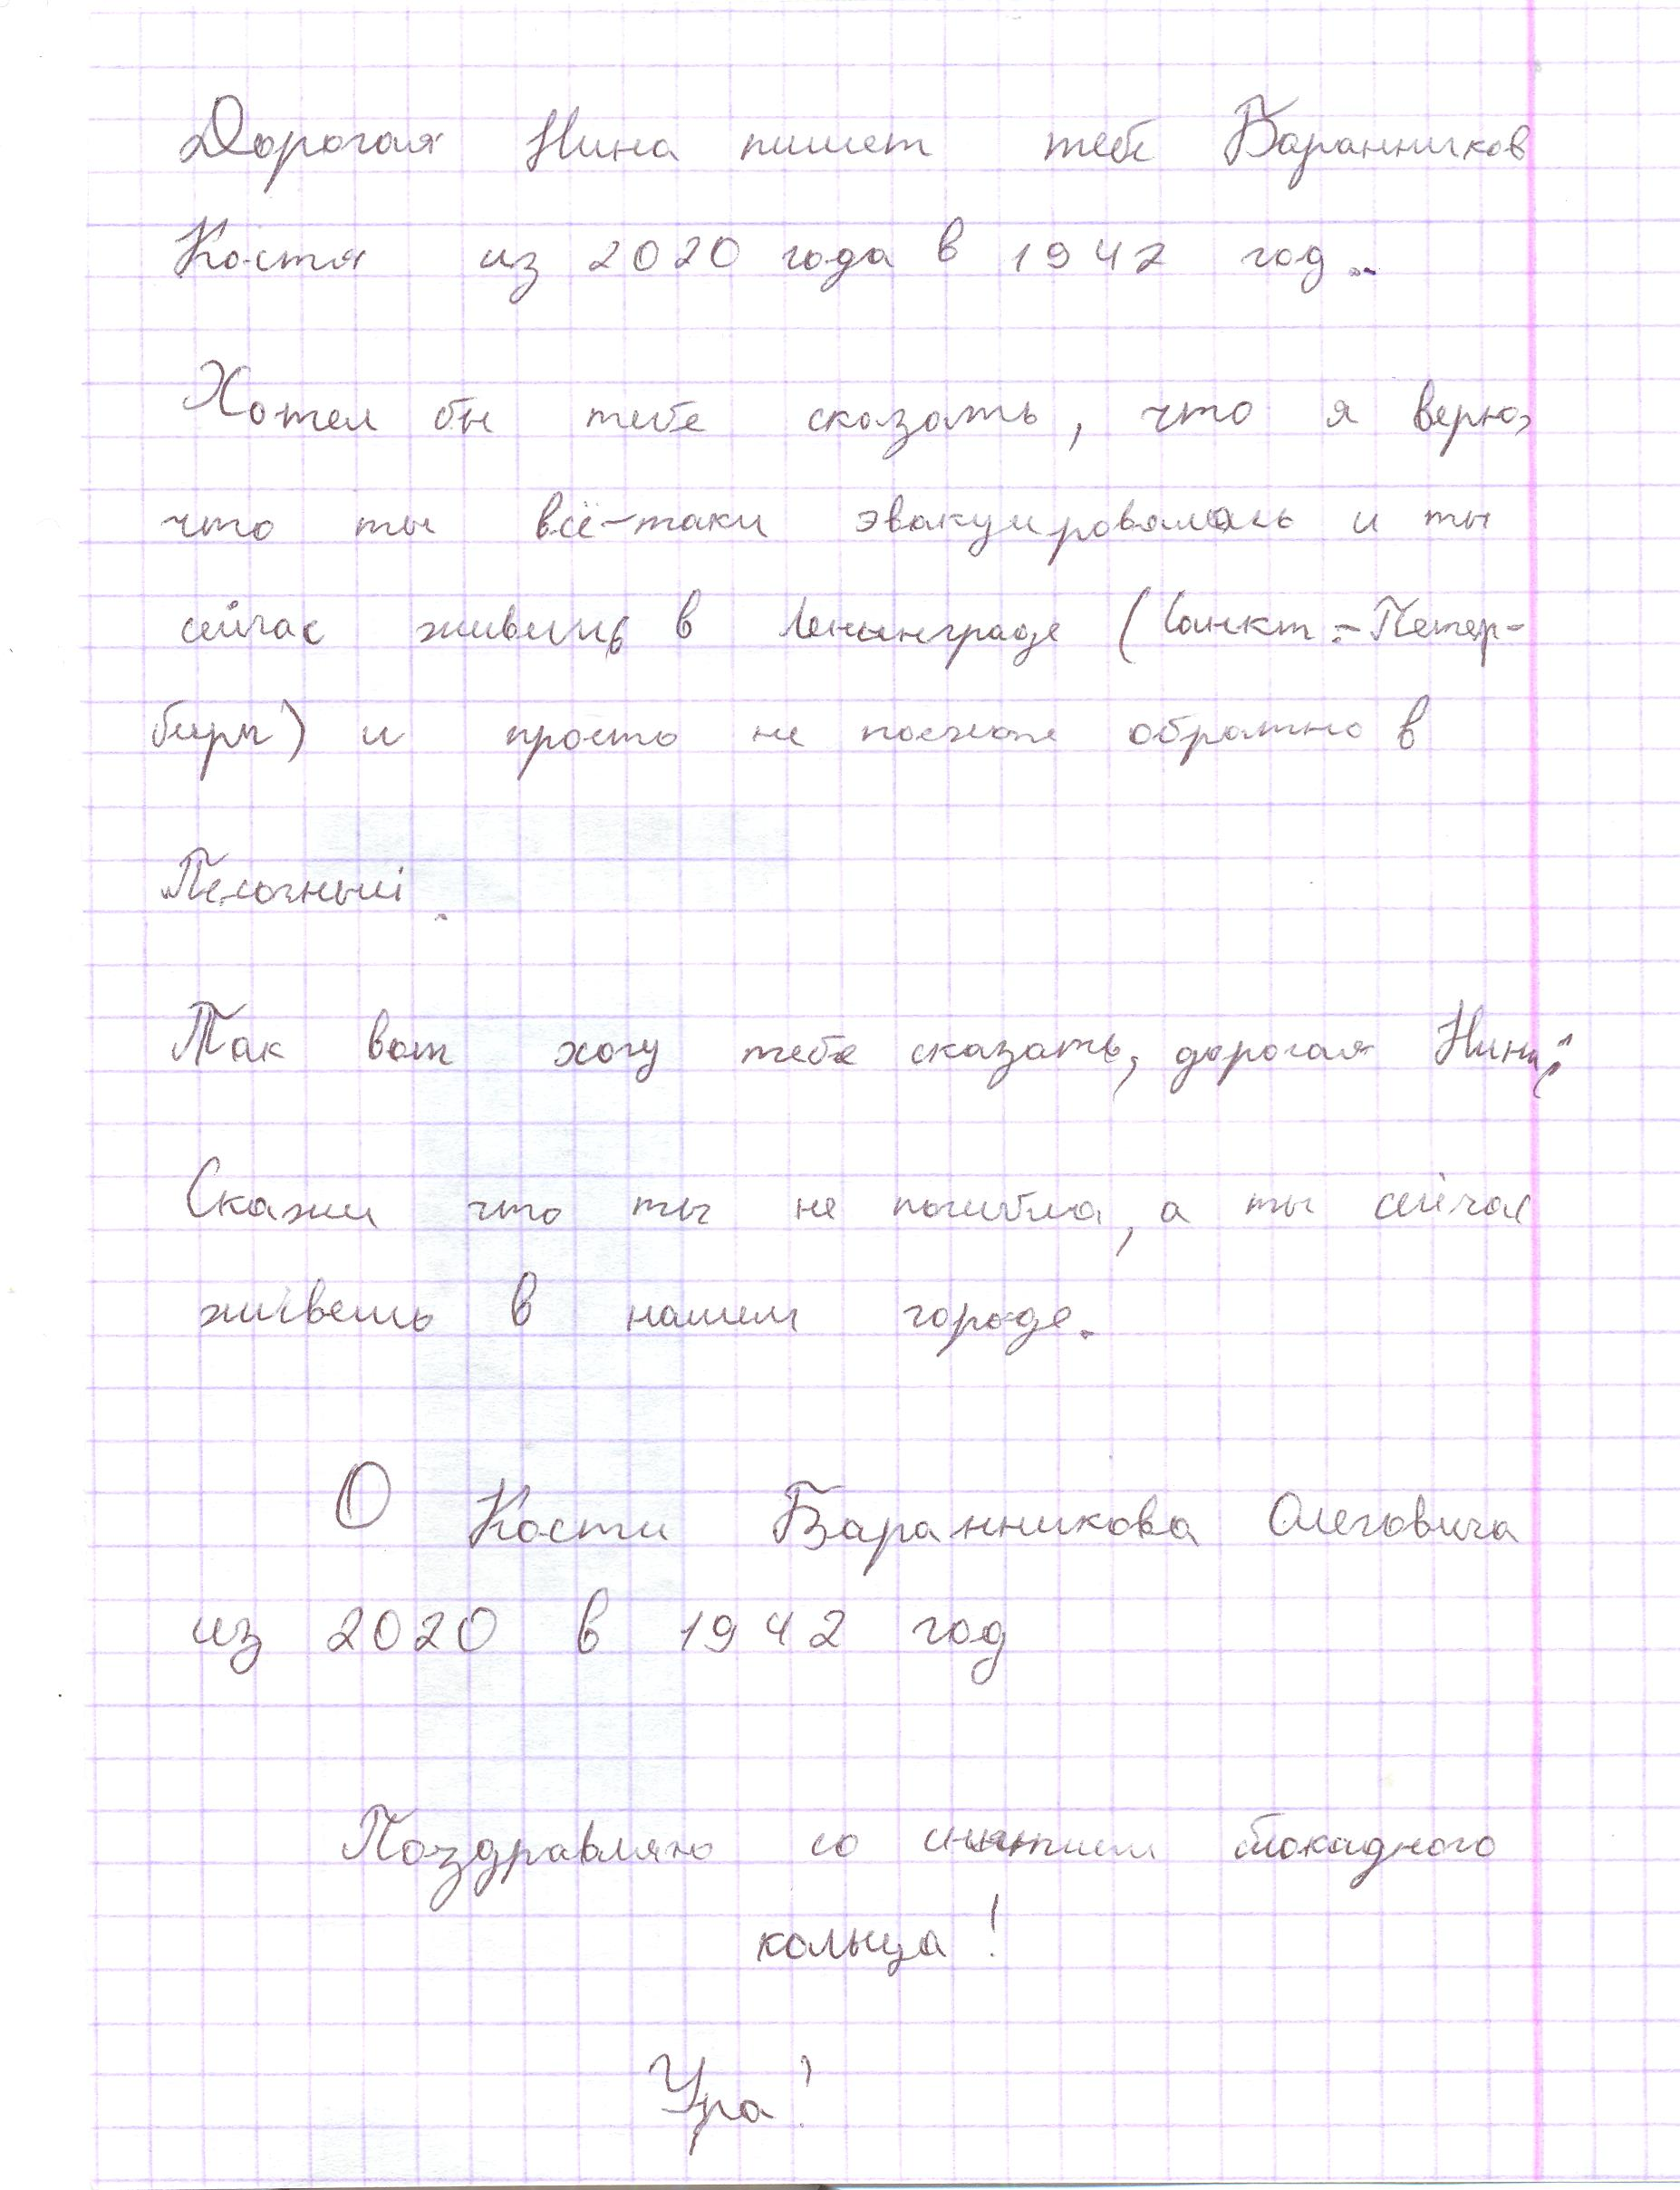 Дорогая Нина пишет тебе Баранников
Костя из 2020 года в 1942 год..
Хотел бы тебе сказать, что я верю,
что ты всё-таки эвакуировалась и ты
сейчас живешь в Ленинграде (Санкт-Петер-
бург) и просто не поехала обратно в
Песочный.
Так вот хочу тебе сказать, дорогая Нина:
Скажи что ты не погибла, а ты сейчас
живешь в нашем городе.
О Кости Баранникова Олеговича
из 2020 в 1942 год
Поздравляю со снятием блокадного
кольца!
Ура!